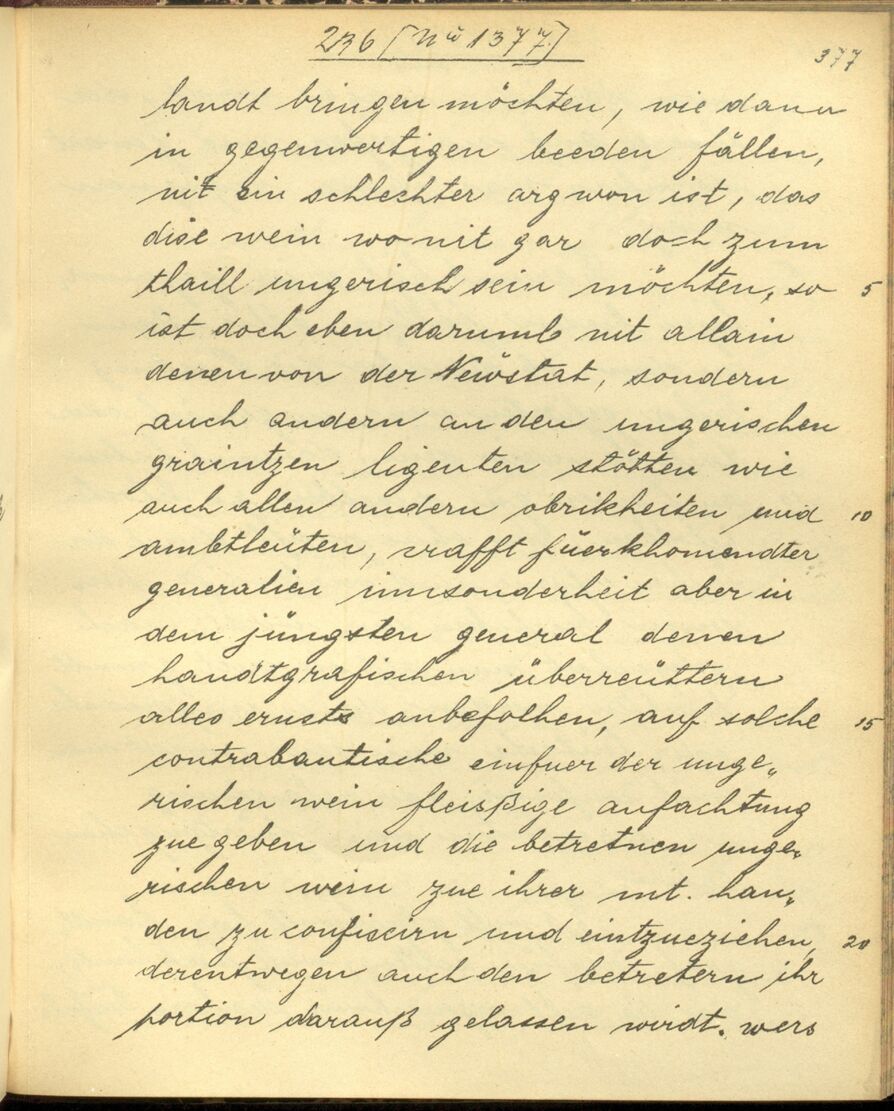 236 [Nro 1377.]
377
landt bringen möchten, wie dann
in gegenwertigen beeden fällen,
nit ein schlechter argwon ist, das
dise wein wo nit gar doch zum
thaill ungerisch sein möchten, so 5
ist doch eben darumb nit allain
denen von der Newstat, sondern
auch andern an den ungerischen
graintzen ligenten stötten wie
auch allen andern obrikheiten und 10
ambtleüten, crafft füerkhomendter
generalien innsonderheit aber in
dem jüngsten general denen
handtgrafischen überreüttern
alles ernsts anbefolhen, auf solche 15
contrabantische einfuer der unge„
rischen wein fleisßige aufachtung
zue geben und die betretnen unge„
rischen wein zue ihrer mt. han„
den zu confiscirn und eintzueziehen, 20
derentwegen auch den betretern ihr
portion darauß gelassen wirdt. wers